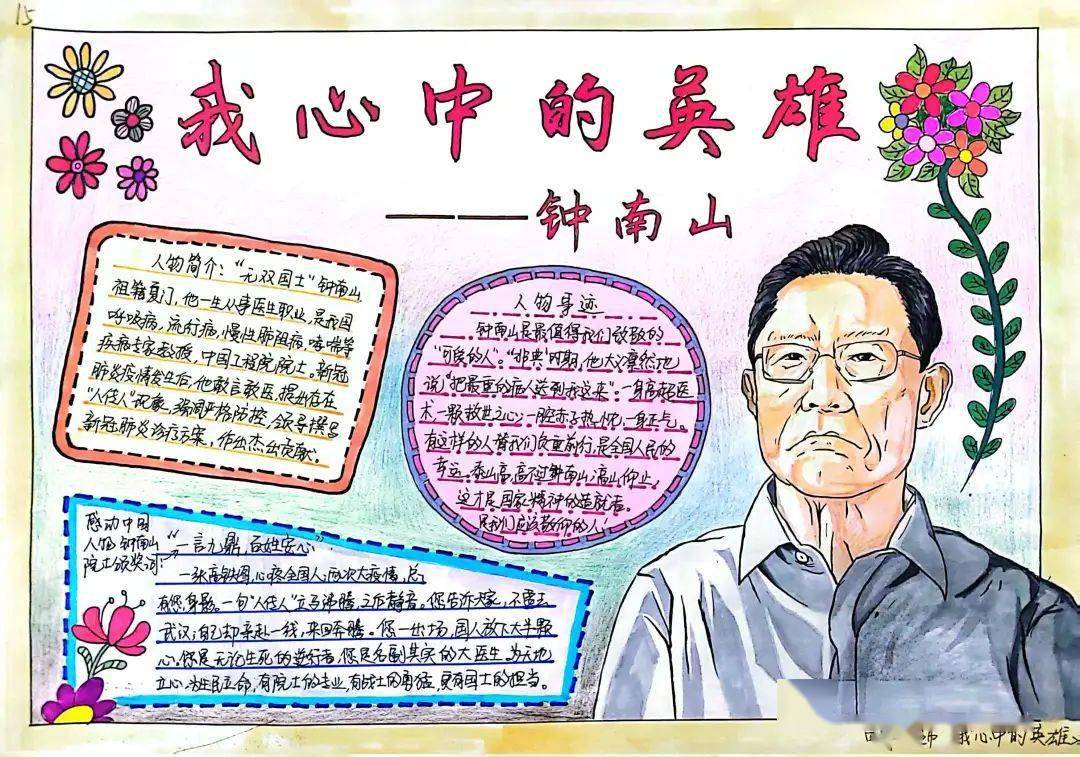 15
我心中的英雄
——钟南山
人物简介:“无双国士”钟南山
祖籍厦门,他一生从事医生职业,是我国
呼吸病,流行病,慢性肺阻病,哮喘等
疾病专家教授,中国工程院院士。新冠
肺炎疫情发生后,他敢言敢医,提出存在
“人传人”现象,强调严格防控,领导撰写
新冠肺炎诊疗方案,作出杰出贡献.
人物事迹
钟南山是最值得我们致敬的
“可爱的人”.“非典”时期,他大义凛然地
说“把最重的病人送到我这来”.一身高超医
术一颗救世之心,一腔赤子热忱,一身正气。
有这样的人替我们负重前行,是全国人民的
幸运。泰山高,高不过钟南山;高山仰止,
这才是国家精神的造就者。
是我们应该敬仰的人!
感动中国
人物钟南山
院士颁奖词:
“一言九鼎,百姓安心”
一张高铁图,心疼全国人;两次大疫情,总
有您身影。一句“人传人”立马沸腾,三斤静音。您告诉大家,不要去
武汉;自己却亲赴一线,来回奔腾。您一出场,国人放下大半颗
心。您是无论生死的逆行者,您是名副其实的大医生.为天地
立心,为生民立命,有院士的专业,有战士的勇猛,更有国士的担当。
我心中的英雄